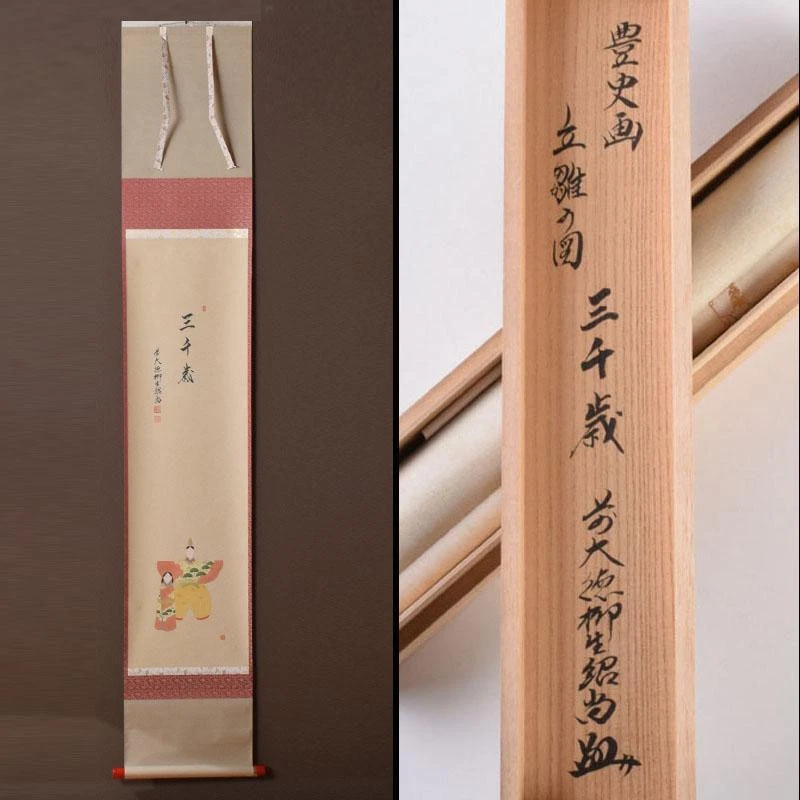 三千歳
前大徳柳生紹尚
豊史画
立雛の図
三千歳
前大徳柳生紹尚